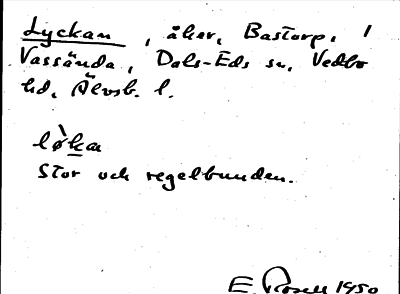 Lyckan, åker, Bastorp, 1
Vassända, Dals-Eds sn, Vedbo
hd, Älvsb. l.
lø̀ka
Stor och regelbunden.
E. Rosell 1950